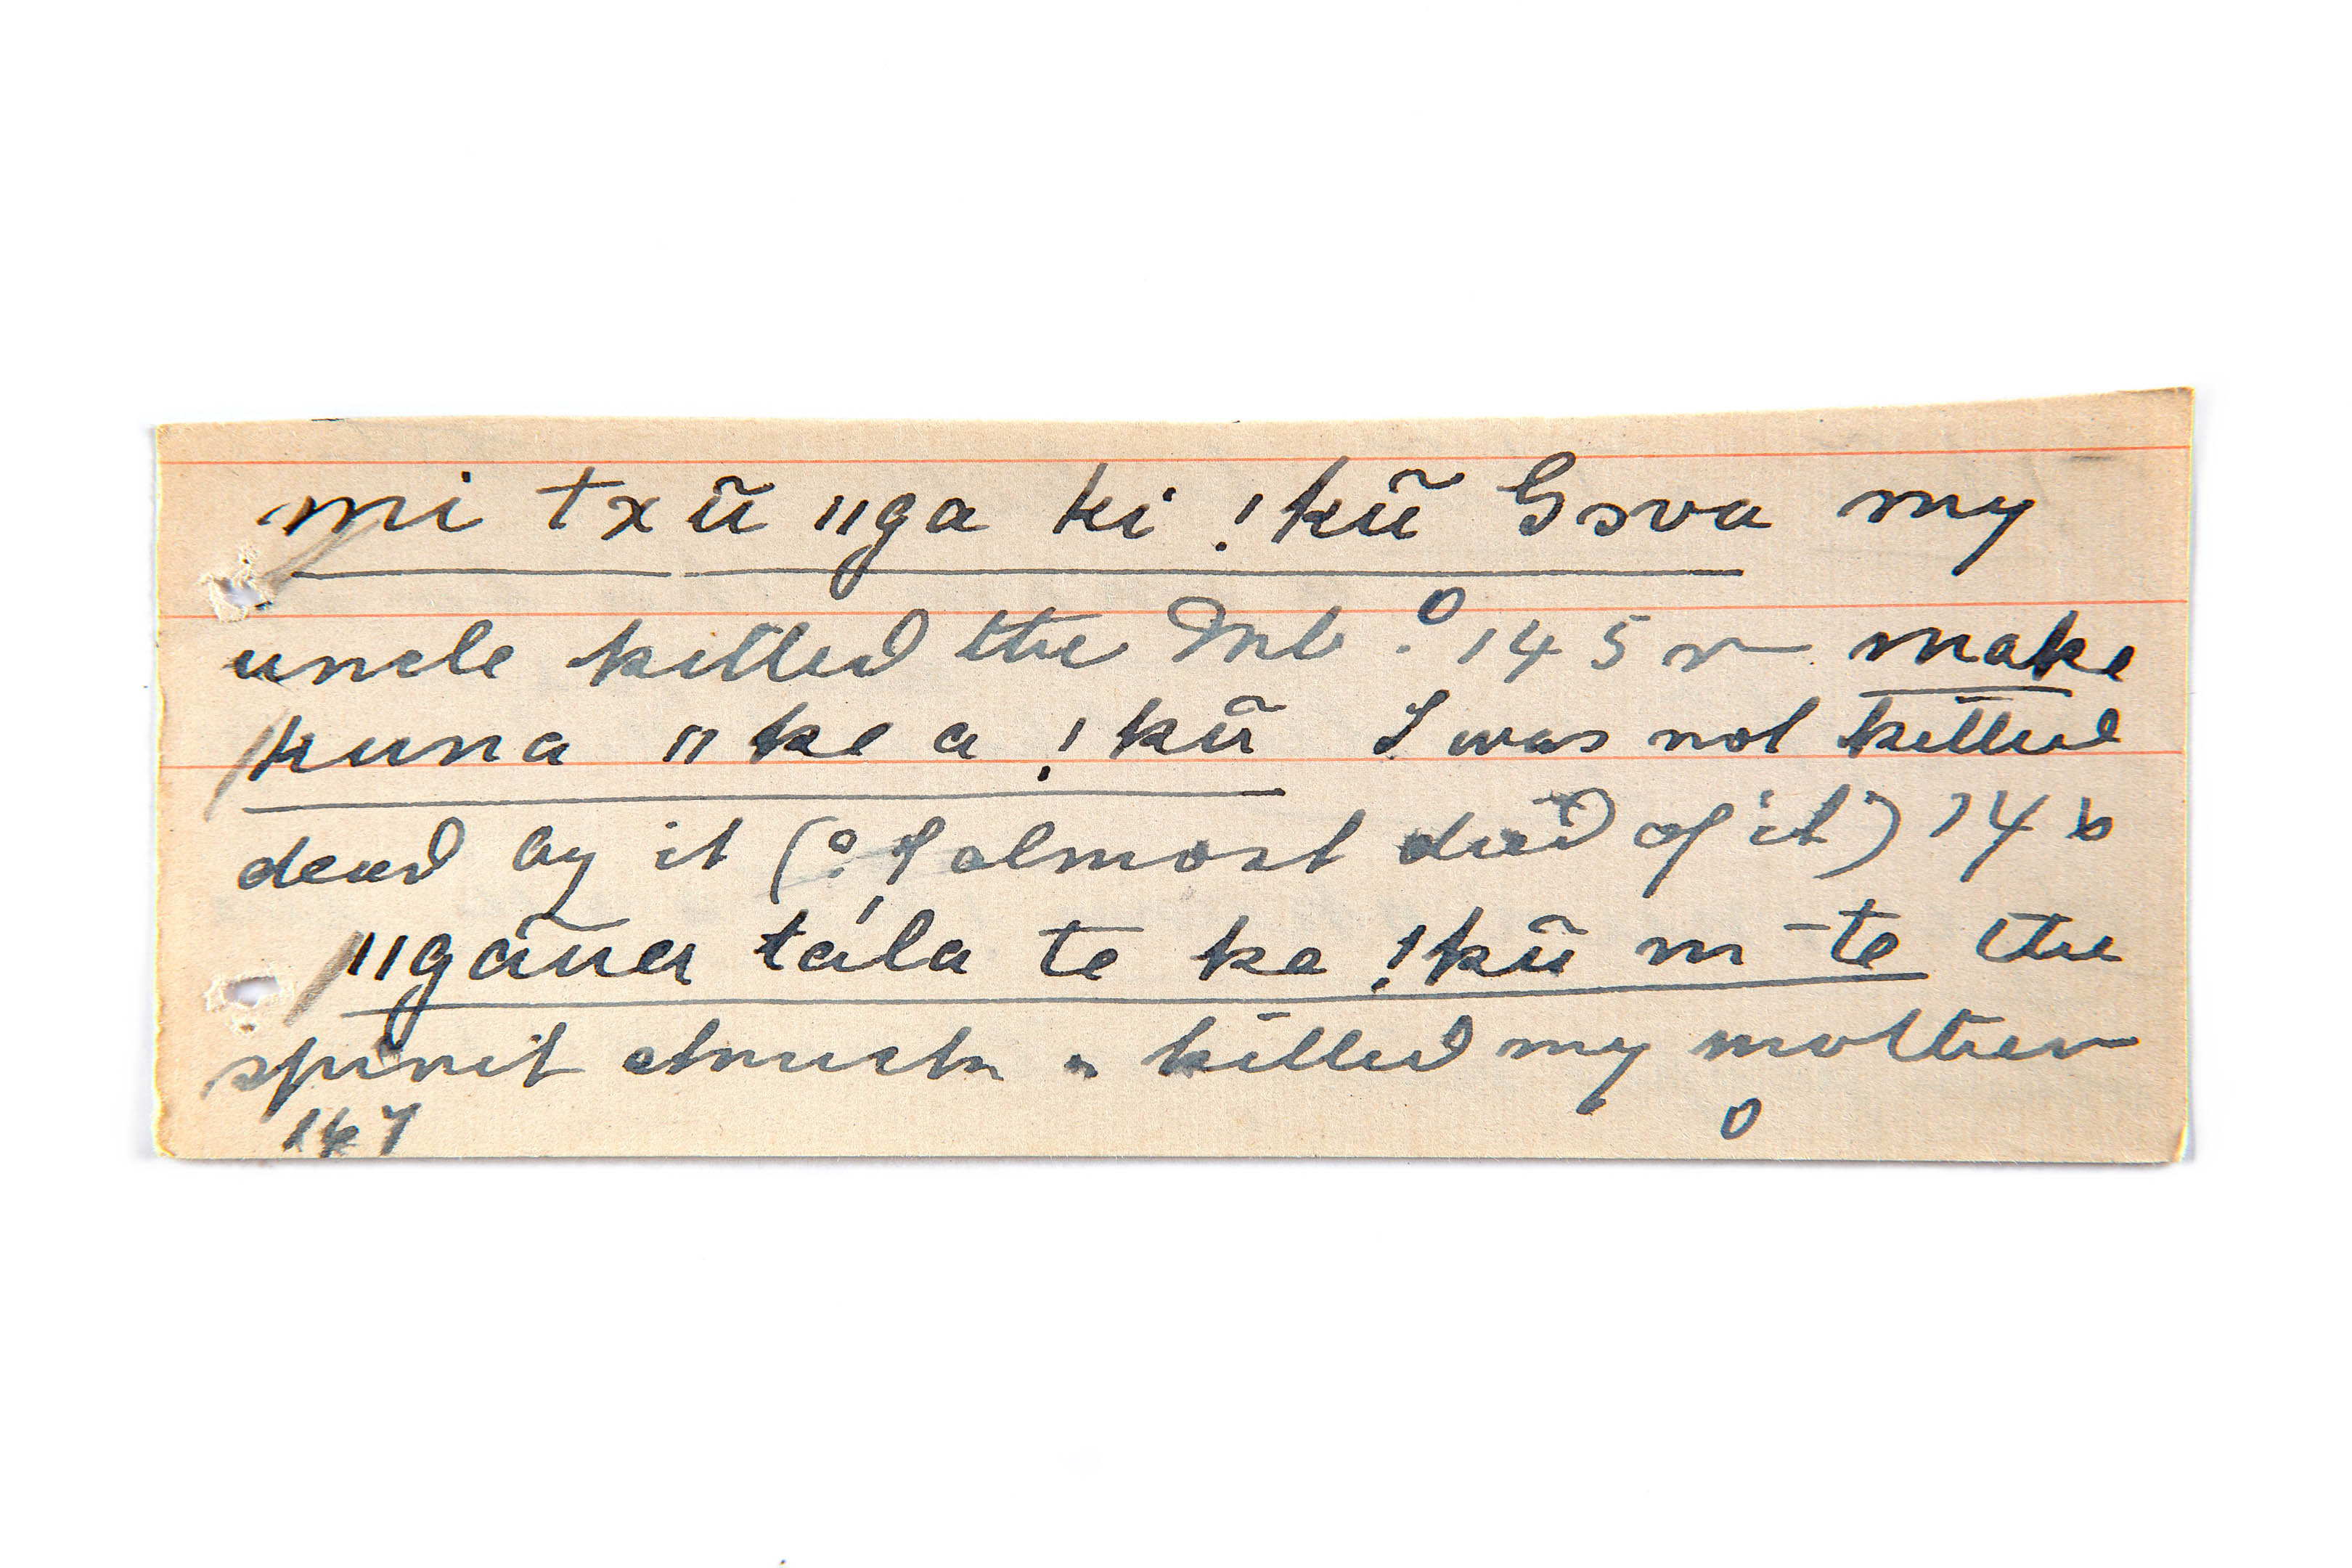 mi txũ ǁga ki !kũ Gɔva my
uncle killed the Mb. 145 r make
kuna ǁke a !kũ I was not killed
dead by it (: I almost died of it) 146
ǁgãua tála te ke !kũ m-te the
spirit struck & killed my mother
147